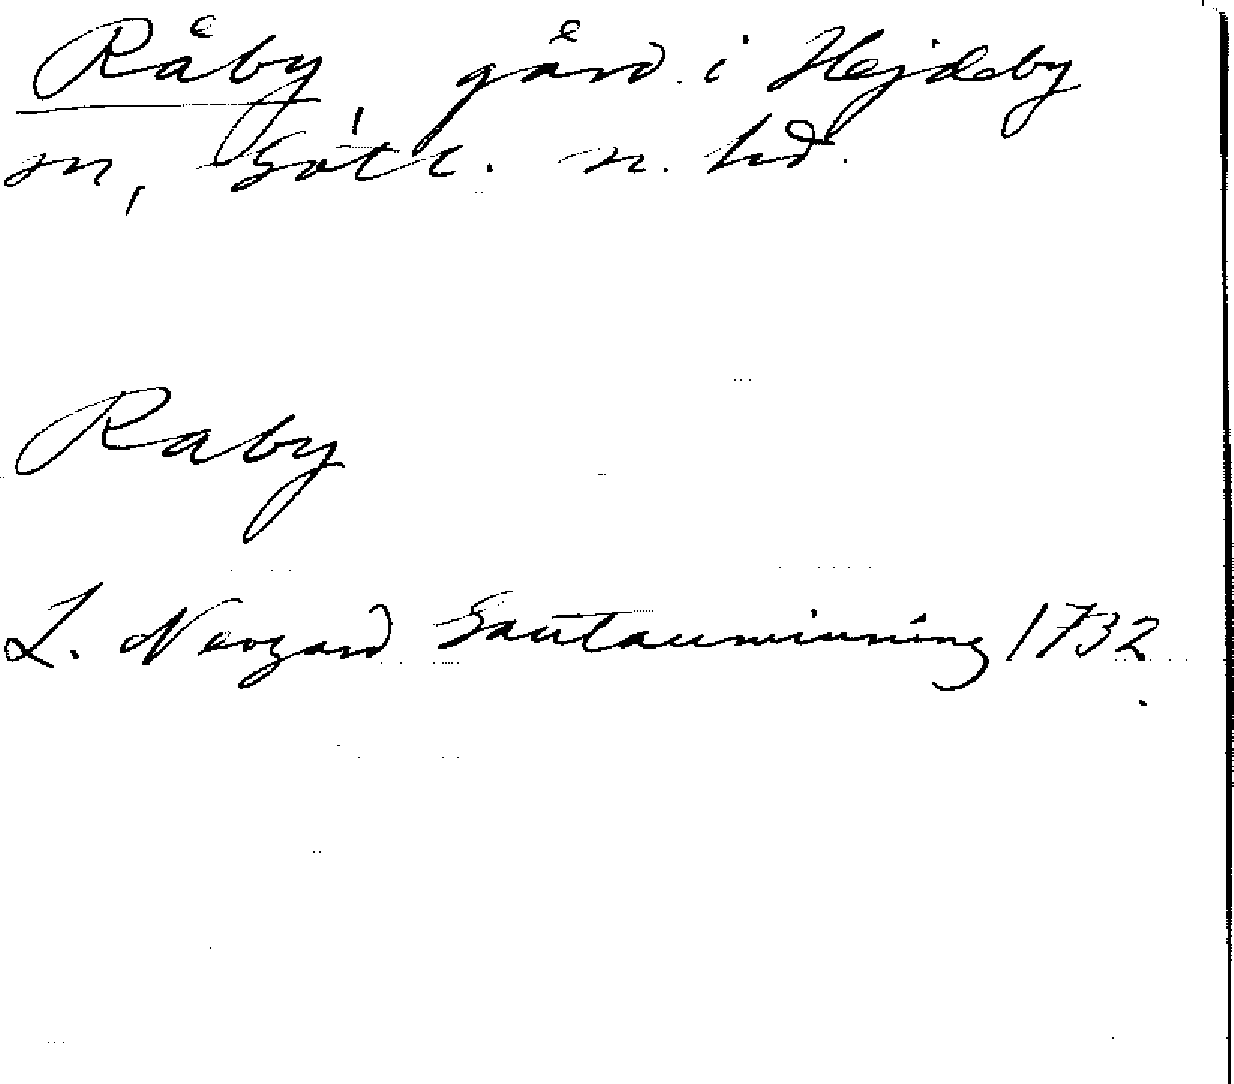 Råby, gård i Hejdeby
sn, Gotl. n. hd.
Raby
L. Neogard Gautauminning 1732